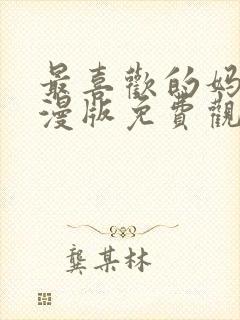 最喜歡的妈
漫版免費觀
龔某林